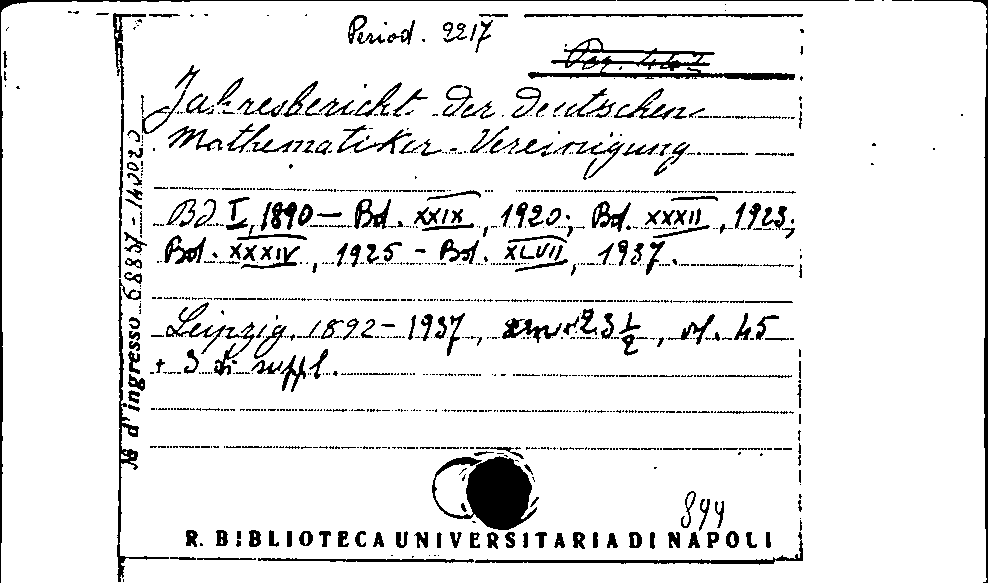 Period. 2217
Per. 442
Jahresbericht der Deutschen
Mathematiker-Vereinigung
Bd I, 1890 — Bd. XXIX, 1920; Bd. XXXII, 1923;
Bd. XXXIV, 1925 - Bd. XLVII, 1937.
Leipzig, 1892-1937, 23 1/2, vl. 45
+ 3 di suppl.
N d'ingresso 68837 - 140020
899
R. BIBLIOTECA UNIVERSITARIA DI NAPOLI